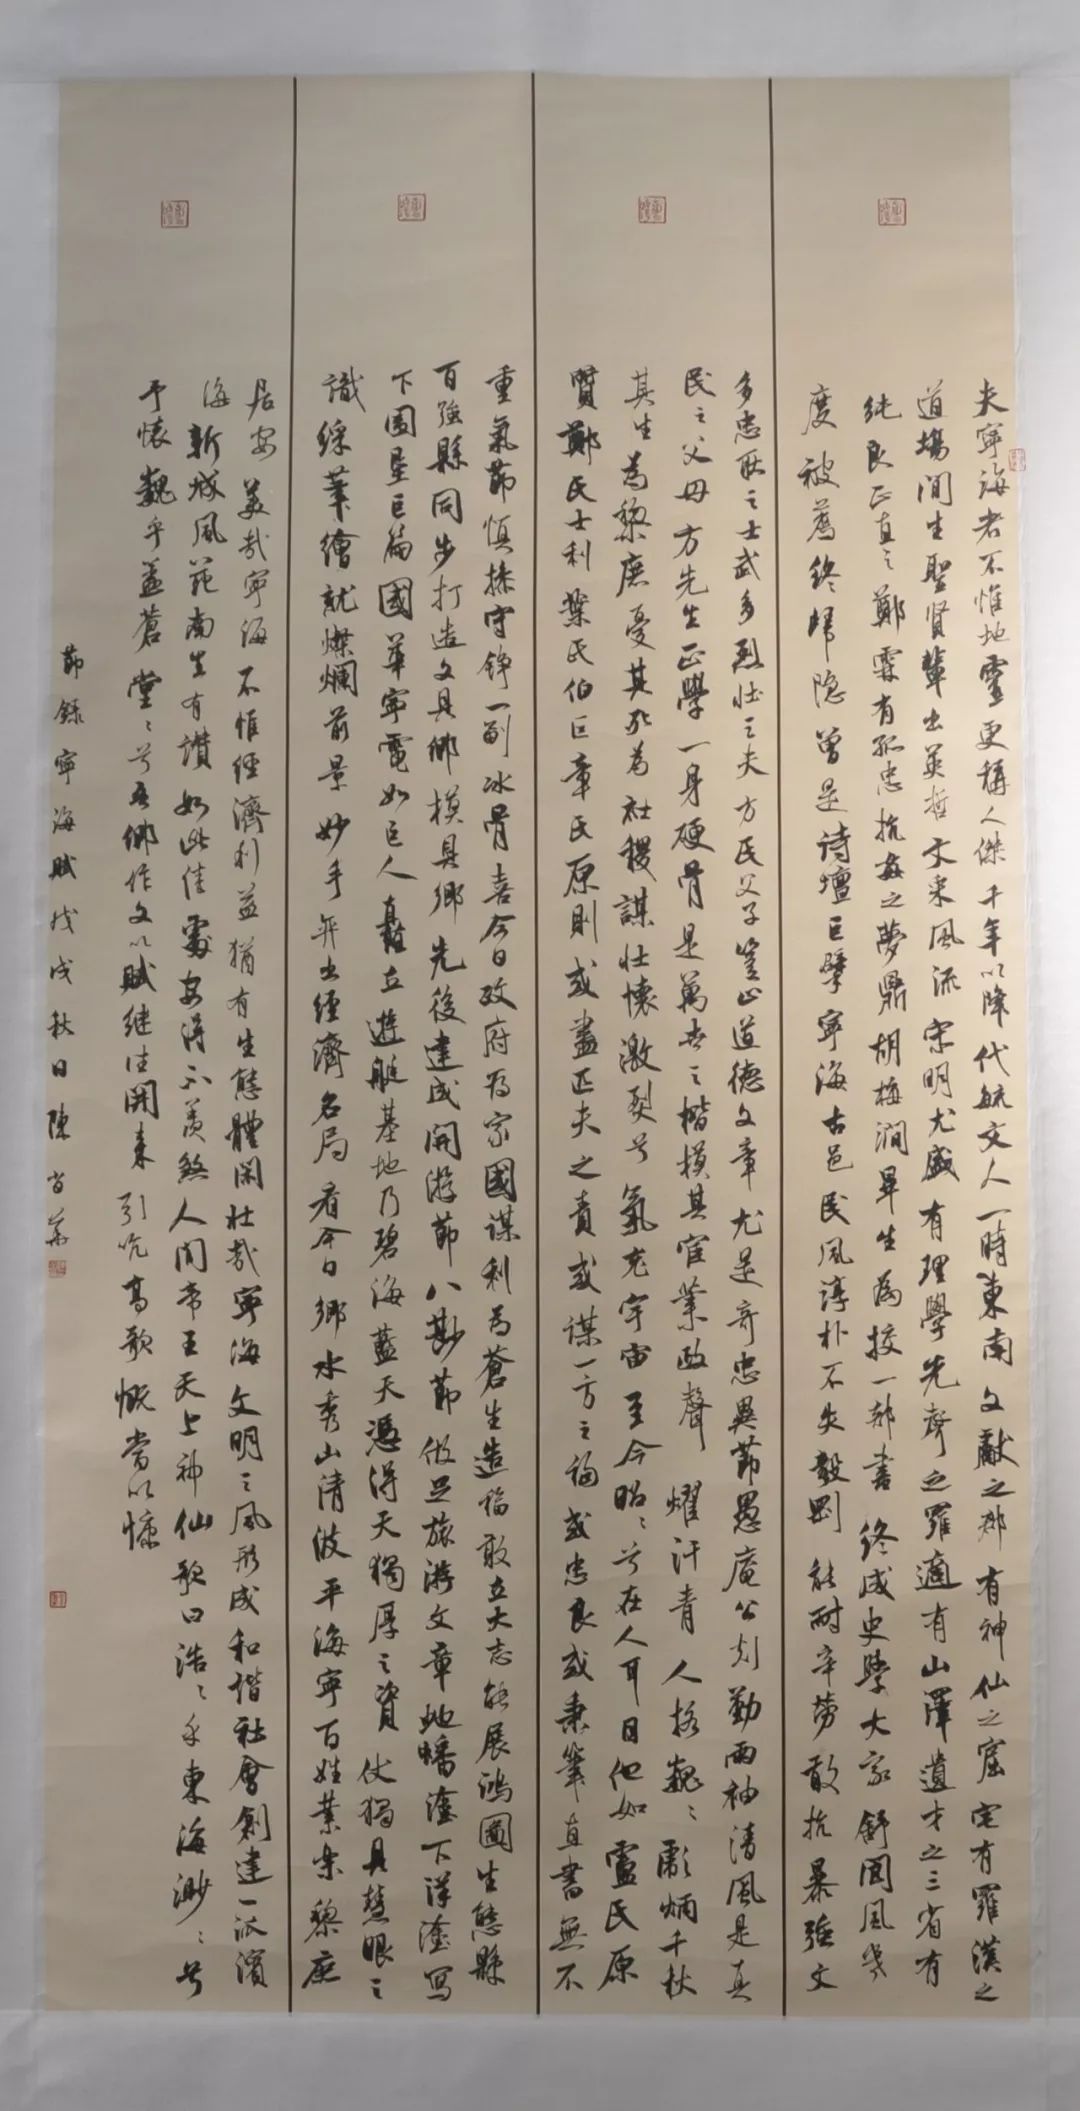 夫寧海者不惟地靈更稱人傑千年以降代毓文人一時東南文獻之邦有神仙之窟宅有羅漢之
道場間生聖賢輩出英哲文采風流宋明尤盛有理學先聲之羅適有山澤遺才之三省有
純良正直之鄭霖有孤忠抗姦之夢鼎胡梅磵畢生為校一部書終成史學大家舒閬風幾
度被薦終歸隱曾是詩壇巨擘寧海古邑民風淳朴不失毅剛能耐辛勞敢抗暴強文
多忠耿之士武多烈壯之夫方氏父子豈止道德文章尤是奇忠異節愚庵公刻勤兩袖清風是真
民之父母方先生正學一身硬骨是萬世之楷模其宦業政聲耀汗青人格巍巍彪炳千秋
其生為黎庶憂其死為社稷謀壯懷激烈兮氣充宇宙至今昭昭兮在人耳目他如盧氏原
質鄭氏士利葉氏伯巨章氏原則或盡匹夫之責或謀一方之福或忠良或秉筆直書無不
重氣節慎操守錚一副冰骨喜今日政府為家國謀利為蒼生造福敢立大志能展鴻圖生態縣
百強縣同步打造文具鄉模具鄉先後建成開游節八勘節做足旅游文章蛇蟠塗下洋塗寫
下圍墾巨篇國華寧電如巨人矗立遊艇基地乃碧海藍天憑得天獨厚之資仗獨具慧眼之
識綵筆繪就燦爛前景妙手弈出經濟名局看今日鄉水秀山清波平海寧百姓業樂黎庶
居安美哉寧海不惟經濟利益猶有生態體閑壯哉寧海文明之風形成和諧社會創建一派濱
海新城風範南生有讚如此佳處安得不羨煞人間帝王天上神仙歌曰浩浩乎東海渺渺兮
予懷巍乎蓋蒼堂堂兮吾鄉作文以賦继往開来引吭高歌慨當以慷
節錄寧海賦戊戌秋日陳